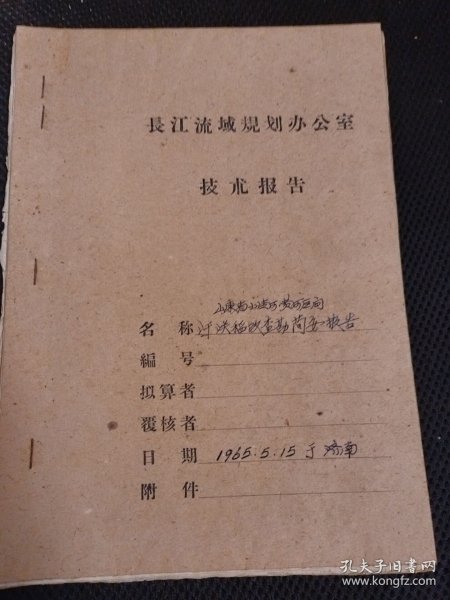 長江流域規划办公室
技朮报告
山东省小清河黄河區间
名称 洼涝稻改查勘简要报告
編号
拟算者
覆核者
日期 1965.5.15于济南
附件
孔夫子旧书网
www.kongfz.com